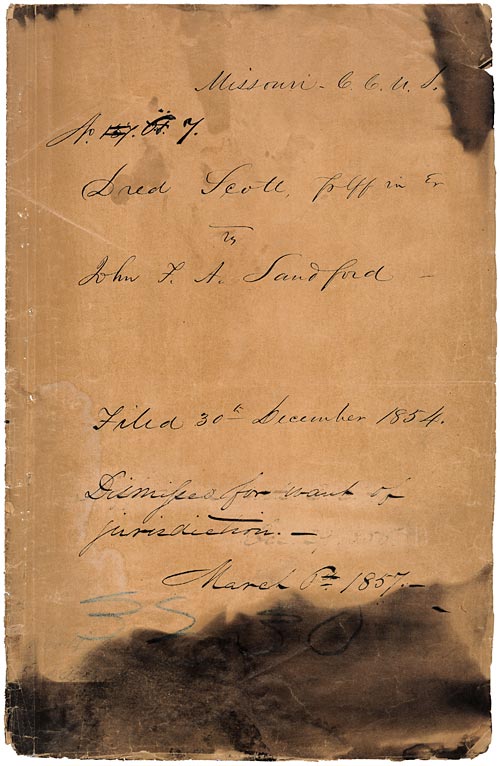 Missouri - C. C. U. S.
No. 137. 65. 7.
Dred Scott, Plff in Er
vs
John F. A. Sandford -
Filed 30th December 1854.
Dismissed for want of
jurisdiction. -
March 6th 1857. -